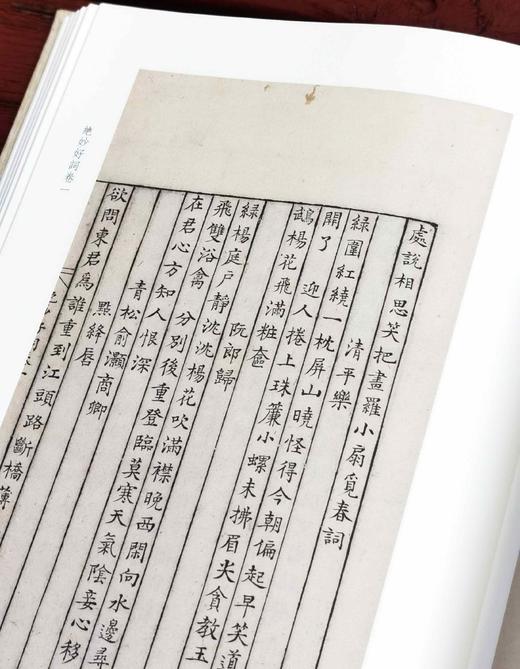 絕妙好詞卷一
處說相思笑把畫羅小扇覓春詞
清平樂
綠圍紅繞一枕屏山曉怪得今朝偏起早笑道
開了　迎人捲上珠簾小螺未拂眉尖貪教玉
鵡楊花飛滿粧奩
阮郎歸
綠楊庭戶靜沈沈楊花吹滿襟晚西閒向水邊尋
飛雙浴禽　分別後重登臨莫寒天氣陰妾心移
在君心方知人恨深
青松俞灝商卿
點絳唇
欲問東君為誰重到江頭路斷橋薄